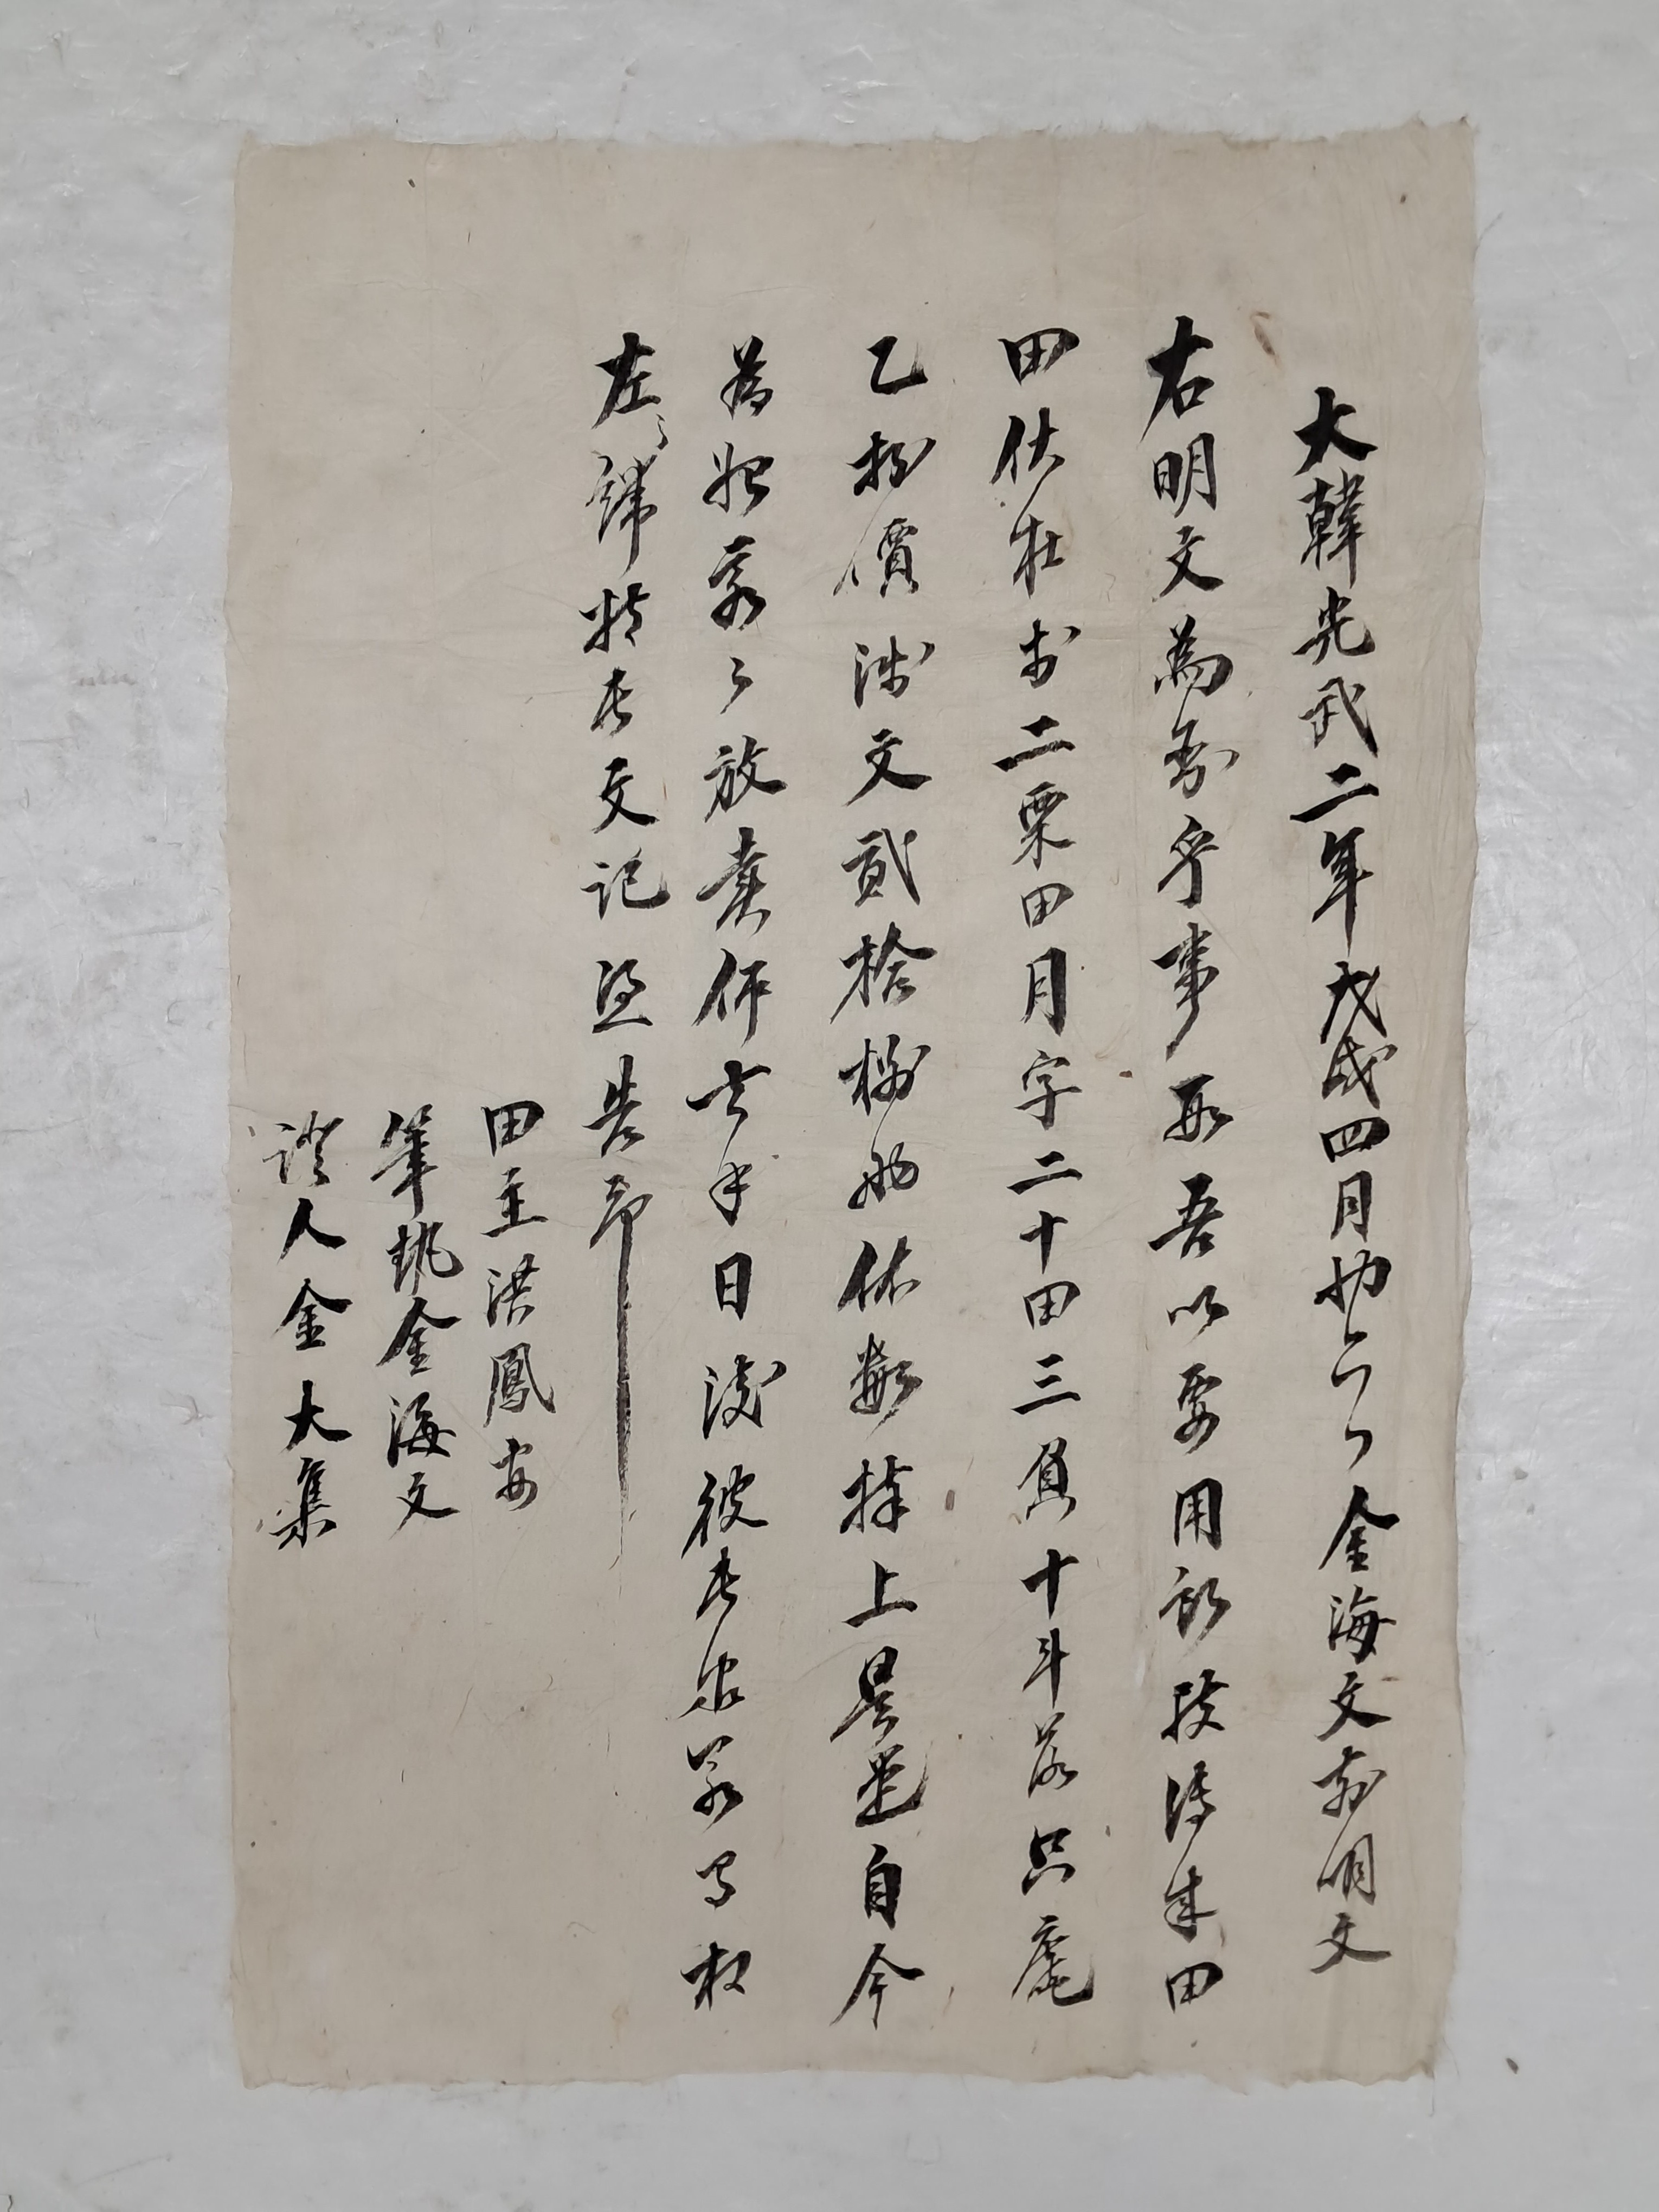 大韓光武二年戊戌四月初六日金海文前明文
右明文爲臥乎事段吾以要用所致傳來田
田伏在於二栗田月字二十田三負十斗落只庫
乙折價錢文貳拾柒兩依數捧上是遣自今
爲始永永放賣作去乎日後彼此若有
左右諸將此文記憑告事
田主洪鳳安
筆執金海文
證人金大集